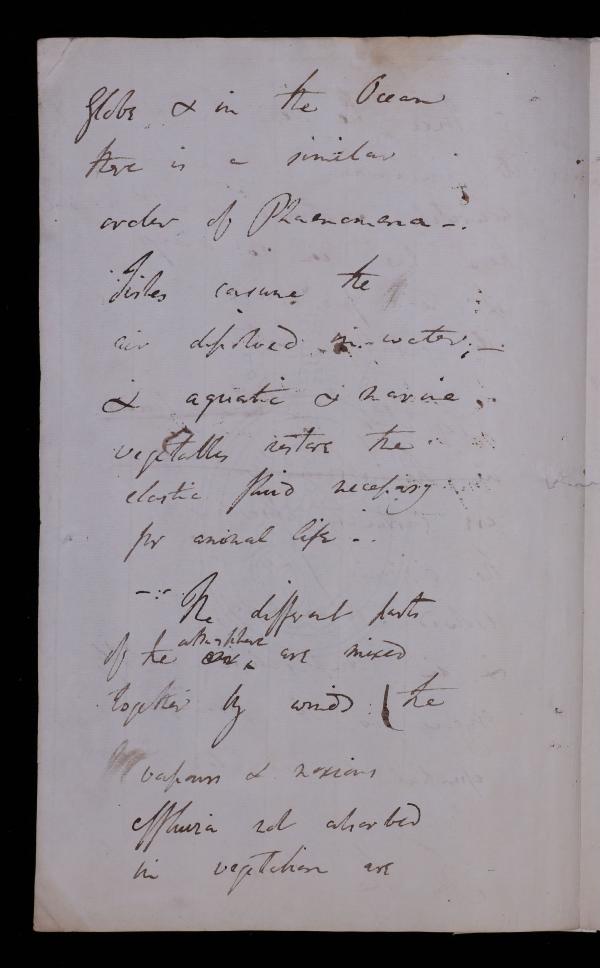 Globe & in the Ocean
there is a similar
order of Phaenomena -.
Fishes consume the
air dissolved in water; -
& aquatic & marine
vegetables restore the
elastic fluid necessary
for animal life -..
-:- The different parts
of the air atmosphere are mixed
together by winds (the
vapours & noxious
effluvia not absorbed
in vegetation are